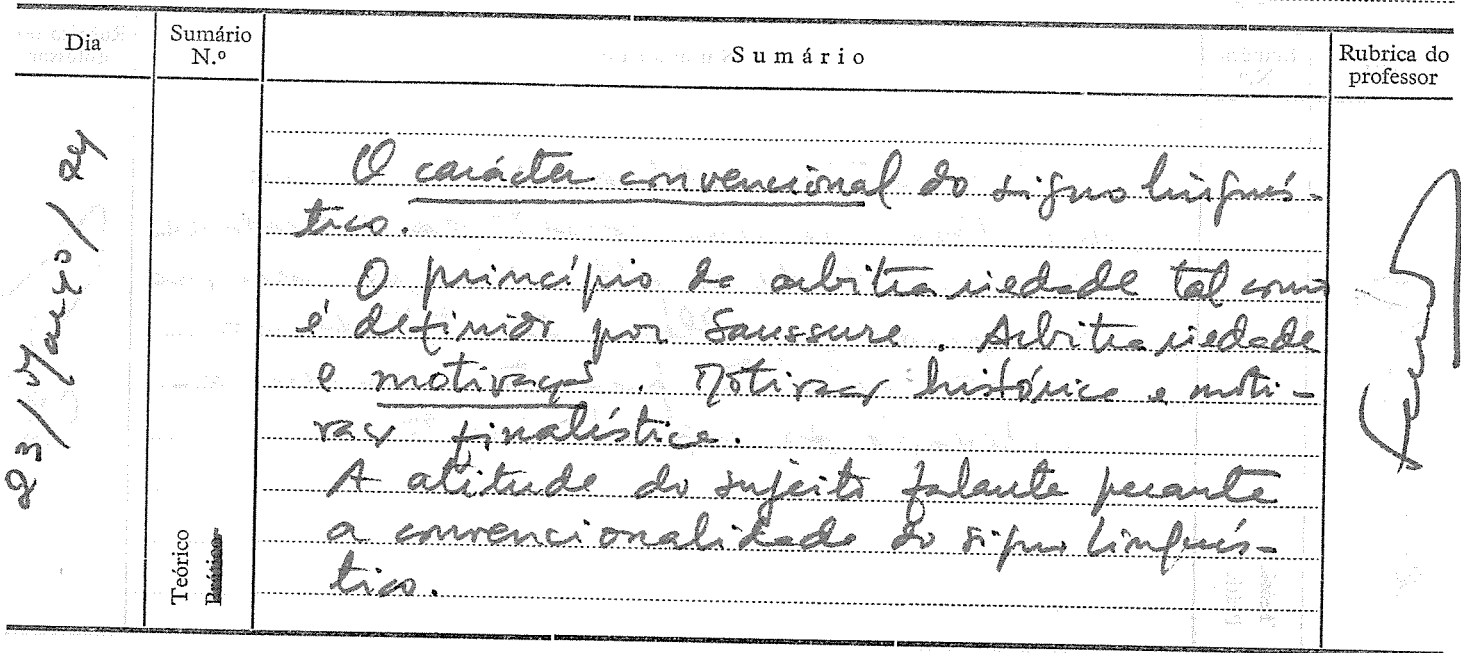 Dia
Sumário N.º
Sumário
Rubrica do professor
23/Março/24
Teórico
Prático
O carácter convencional do signo linguís-
tico.
O princípio da arbitrariedade tal como
é definido por Saussure. Arbitrariedade
e motivação. Motivação histórica e moti-
vação finalística.
A atitude do sujeito falante perante
a convencionalidade do signo linguís-
tico.